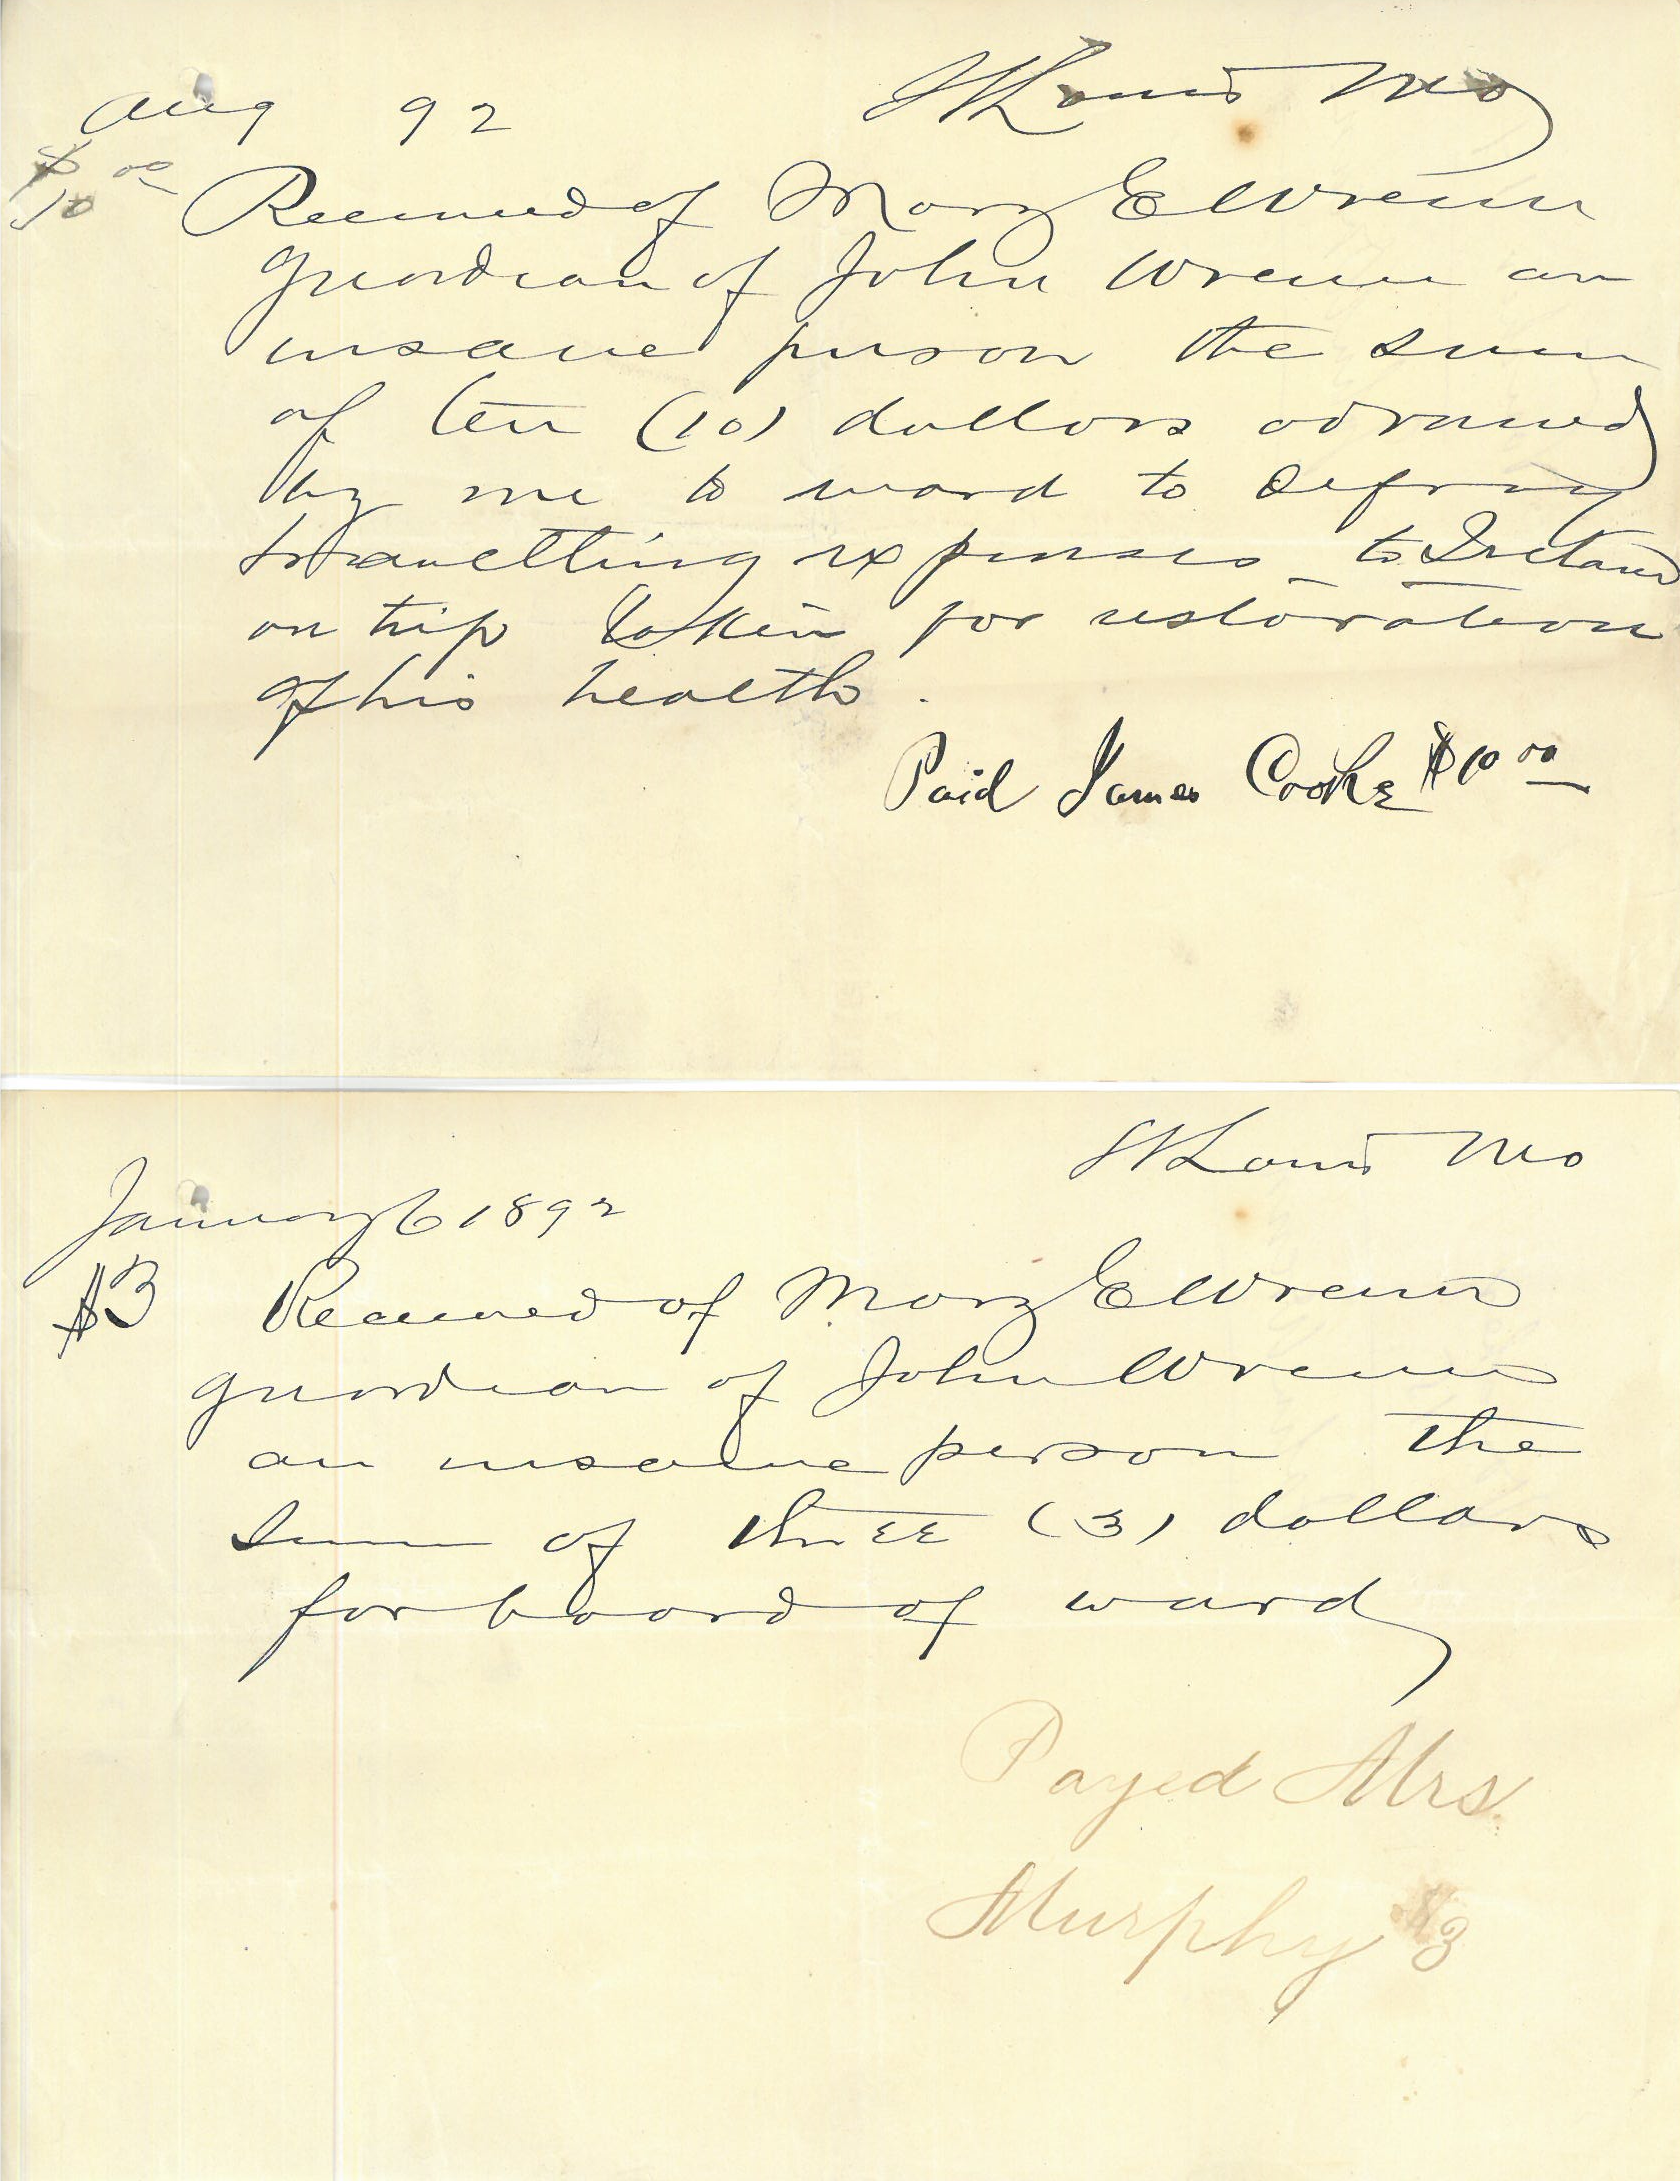 St Louis Mo
Aug 92
$10.00 Received of Mary E Wrenn
guardian of John Wrenn an
insane person the sum
of ten (10) dollars advanced
by me to ward to defray
travelling expenses to Ireland
on trip taken for restoration
of his health.
Paid James Cooke $10 00
St Louis Mo
January 6 1892
$3 Received of Mary E Wrenn
guardian of John Wrenn
an insane person the
sum of three (3) dollars
for board of ward
Payed Mrs.
Murphy $3